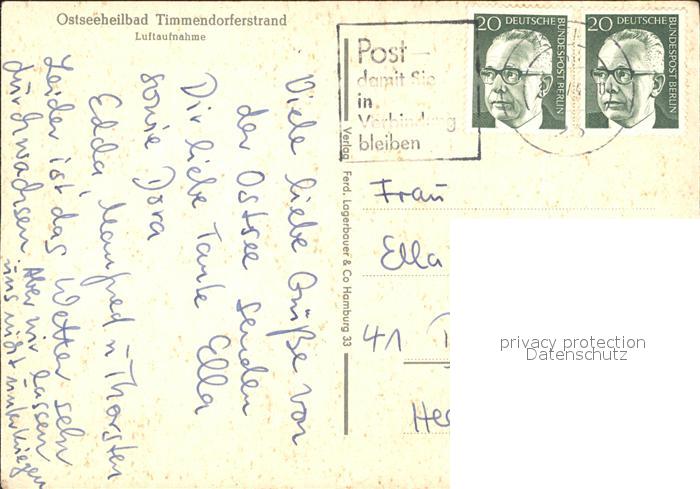 Ostseeheilbad Timmendorferstrand
Luftaufnahme
Post –
damit Sie
in
Verbindung
bleiben
20 DEUTSCHE BUNDESPOST BERLIN
20 DEUTSCHE BUNDESPOST BERLIN
Viele liebe Grüße von
der Ostsee senden
Dir liebe Tante Ella
sowie Dora
Edda, Manfred u Thorsten
Leider ist das Wetter sehr
durchwachsen. Aber wir lassen
uns nicht unterkriegen
Verlag Ferd. Lagerbauer & Co Hamburg 33
Frau
Ella
41
privacy protection
Datenschutz